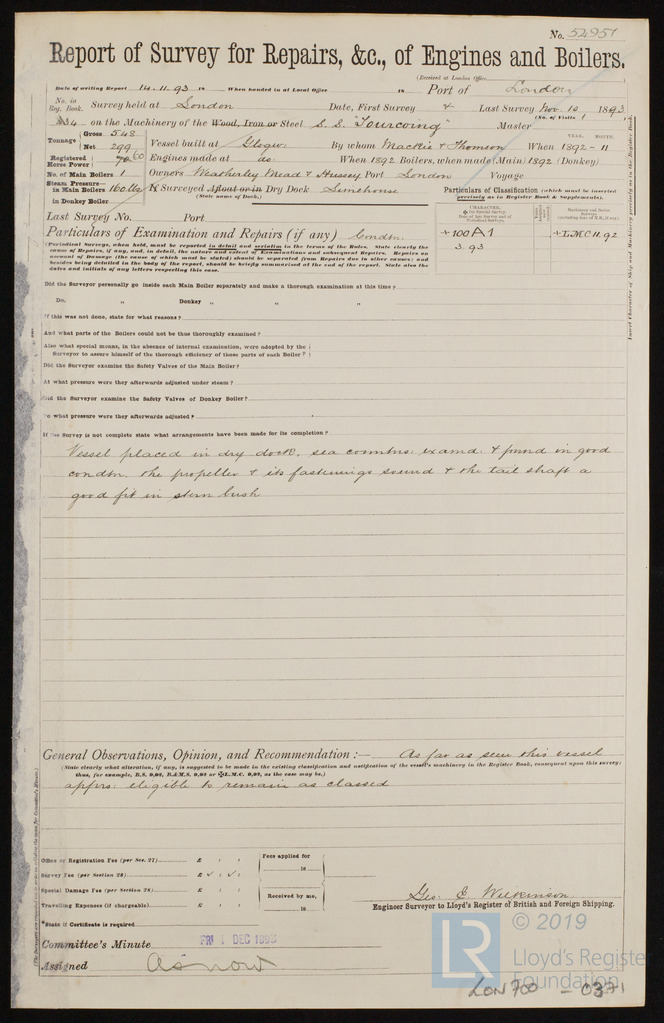 No. 54951
Report of Survey for Repairs, &c., of Engines and Boilers.
(Received at London Office
Date of writing Report 14.11.93 18 When handed in at Local Office 18 Port of London
No. in Reg. Book. Survey held at London Date, First Survey & Last Survey Nov. 10 1893
(No. of Visits 1)
34 on the Machinery of the Wood, Iron or Steel S.S. "Tourcoing" Master
Tonnage Gross 548 Net 299
Vessel built at Glasgow By whom Mackie & Thomson When 1892 - 11
YEAR. MONTH.
Registered Horse Power 70 60
Engines made at do When 1892 Boilers, when made (Main) 1892 (Donkey)
No. of Main Boilers 1
Owners Weatherley Mead & Hussey Port London Voyage
Steam Pressure— in Main Boilers 160 lbs
in Donkey Boiler
If Surveyed Afloat or in Dry Dock Limehouse
(State name of Dock.)
Particulars of Classification (which must be inserted precisely as in Register Book & Supplements).
Last Survey No. Port
CHARACTER.
+100A1
3.93
+LMC 11.92
Particulars of Examination and Repairs (if any) Condtn.
(Periodical Surveys, when held, must be reported in detail and seriatim in the terms of the Rules. State clearly the
cause of Repairs, if any, and, in detail, the nature and extent of Examinations and subsequent Repairs. Repairs on
account of Damage (the cause of which must be stated) should be separated from Repairs due to other causes; and
besides being detailed in the body of the report, should be briefly summarised at the end of the report. State also the
dates and initials of any letters respecting this case.
Did the Surveyor personally go inside each Main Boiler separately and make a thorough examination at this time?
Do. „ Donkey „ „ „
If this was not done, state for what reasons?
And what parts of the Boilers could not be thus thoroughly examined?
Also what special means, in the absence of internal examination, were adopted by the
Surveyor to assure himself of the thorough efficiency of those parts of each Boiler?
Did the Surveyor examine the Safety Valves of the Main Boiler?
At what pressure were they afterwards adjusted under steam?
Did the Surveyor examine the Safety Valves of Donkey Boiler?
To what pressure were they afterwards adjusted?
If the Survey is not complete state what arrangements have been made for its completion?
Vessel placed in dry dock, sea connctns: examd: & found in good
condtn. the propeller & its fastenings sound & the tail shaft a
good fit in stern bush
General Observations, Opinion, and Recommendation :— As far as seen this vessel
(State clearly what alteration, if any, is suggested to be made in the existing classification and notification of the vessel's machinery in the Register Book, consequent upon this survey:
thus, for example, B.S. 9,92, B.&M.S. 9,92 or L.M.C. 9,92, as the case may be.)
apprs: eligible to remain as classed
Office or Registration Fee (per Sec. 27) £ : :
Survey Fee (per Section 28) £ : :
Special Damage Fee (per Section 28) £ : :
Travelling Expenses (if chargeable) £ : :
Fees applied for
18
Received by me,
18
Geo. E. Wilkinson
Engineer Surveyor to Lloyd's Register of British and Foreign Shipping.
*State if Certificate is required
Committee's Minute FRI 1 DEC 1893
Assigned As now
© 2019
LR
Lloyd's Register
Foundation
LON 700 - 0371